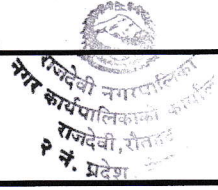 राजदेवी नगरपालिका
नगर कार्यपालिकाको कार्यालय
राजदेवी, रौतहट
२ नं. प्रदेश